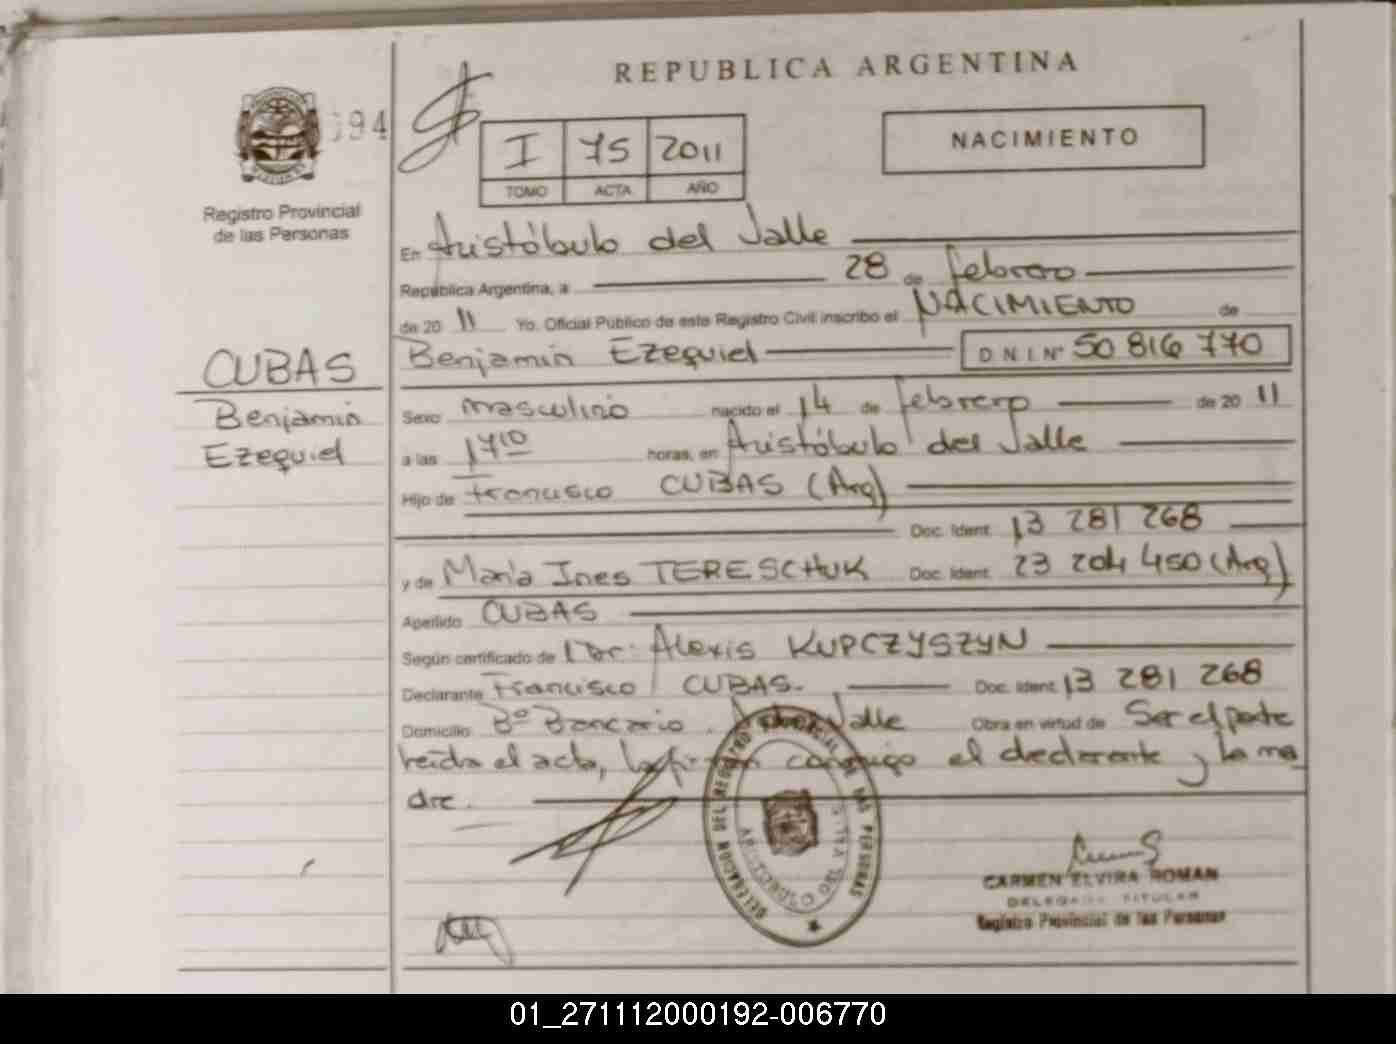 REPUBLICA ARGENTINA
394
I 75 2011
TOMO ACTA AÑO
NACIMIENTO
Registro Provincial
de las Personas
En Aristóbulo del Valle
República Argentina, a 28 de febrero
de 20 11 Yo. Oficial Público de este Registro Civil inscribo el NACIMIENTO de
Benjamin Ezequiel D.N.I. Nº 50 816 770
CUBAS
Benjamin
Ezequiel
Sexo masculino nacido el 14 de febrero de 20 11
a las 17 10 horas, en Aristóbulo del Valle
Hijo de Francisco CUBAS (Arg)
Doc. Ident. 13 281 268
y de Maria Ines TERESCHUK Doc. Ident. 23 204 450 (Arg)
Apellido CUBAS
Según certificado de Dr: Alexis KUPCZYSZYN
Declarante Francisco CUBAS. Doc. Ident. 13 281 268
Domicilio Bº Bancario. Valle Obra en virtud de Ser el padre
Leída el acta, la firman conmigo el declarante y la ma
dre.
DELEGACION DEL REGISTRO PROVINCIAL DE LAS PERSONAS
ARISTOBULO DEL VALLE
CARMEN ELVIRA ROMAN
DELEGADA TITULAR
Registro Provincial de las Personas
01_271112000192-006770